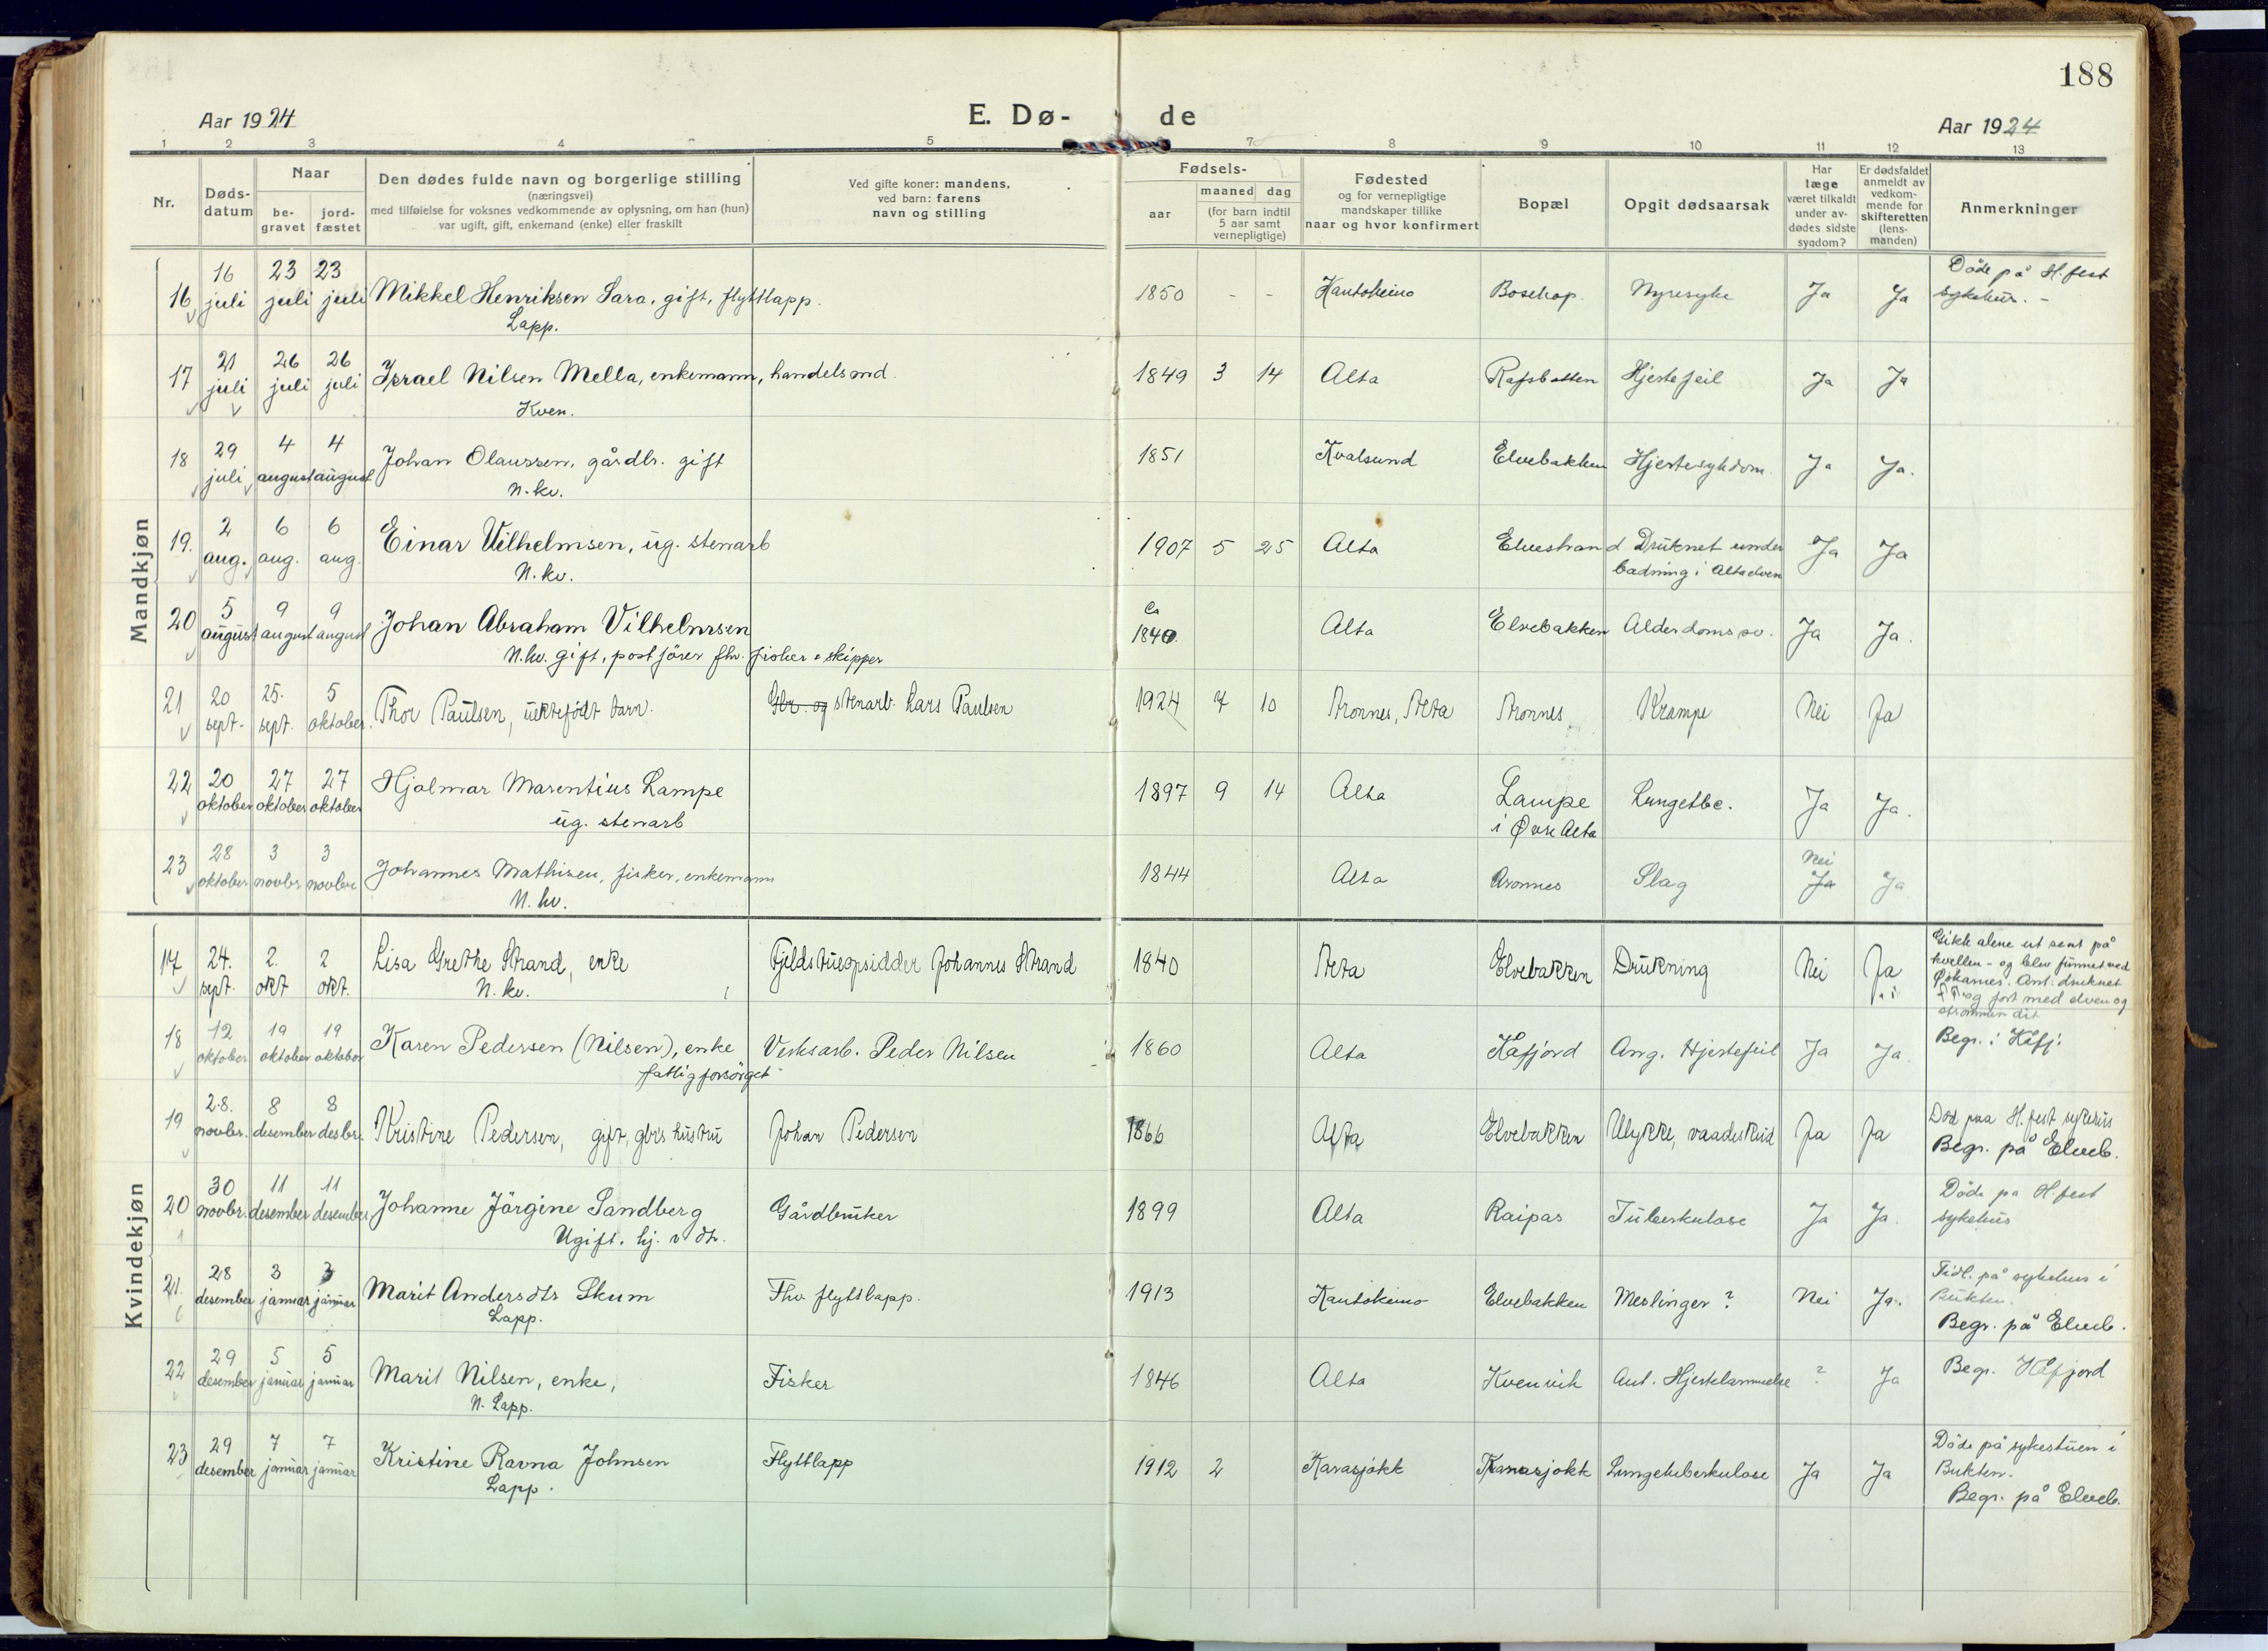 188
Aar 1924
E. Dø-de
Aar 1924
1 2 3 4 5 7 8 9 10 11 12 13
Nr.
Døds-datum
Naar
be-gravet
jord-fæstet
Den dødes fulde navn og borgerlige stilling
(næringsvei)
med tilføielse for voksnes vedkommende av oplysning, om han (hun)
var ugift, gift, enkemand (enke) eller fraskilt
Ved gifte koner: mandens,
ved barn: farens
navn og stilling
Fødsels-
aar
maaned dag
(for barn indtil
5 aar samt
vernepligtige)
Fødested
og for vernepligtige
mandskaper tillike
naar og hvor konfirmert
Bopæl
Opgit dødsaarsak
Har
læge
været tilkaldt
under av-
dødes sidste
sygdom?
Er dødsfaldet
anmeldt av
vedkom-
mende for
skifteretten
(lens-
manden)
Anmerkninger
Mandkjøn
16 16 juli 23 juli 23 juli Mikkel Henriksen Sara, gift, flyttlapp. 1850 - - Kautokeino Bosekop. Nyresyke Ja Ja Döde på H.fest sykehus. -
Lapp.
17 21 juli 26 juli 26 juli Israel Nilsen Mella, enkemann, handelsmd. 1849 3 14 Alta Rafsbotten Hjertefeil Ja Ja
Kven.
18 29 juli 4 august 4 august Johan Olaussen, gårdbr. gift 1851 Kvalsund Elvebakken Hjertesykdom. Ja Ja.
N.kv.
19. 2 aug. 6 aug. 6 aug. Einar Vilhelmsen, ug. stenarb 1907 5 25 Alta Elvestrand Druknet under badning i Altaelven Ja Ja
N.kv.
20 5 august 9 august 9 august Johan Abraham Vilhelmsen Ca 1840 Alta Elvebakken Alderdomssv. Ja Ja.
N.kv. gift, postförer fhv. fisker & skipper
21 20 sept. 25. sept. 5 oktober. Thor Paulsen, uektefödt barn. Gbr. og stenarb. Lars Paulsen 1924 7 10 Aronnes, Alta Aronnes Krampe Nei Ja
22 20 oktober 27 oktober 27 oktober Hjalmar Marentius Lampe 1897 9 14 Alta Lampe i Øvre Alta Lungetbc. Ja Ja.
ug. stenarb
23 28 oktober 3 novbr 3 novbr Johannes Mathisen, fisker, enkemann 1844 Alta Aronnes Slag Nei Ja Ja
N.kv.
Kvindekjøn
17 24. sept. 2. okt 2 okt. Lisa Grethe Strand, enke Fjeldstueopsidder Johannes Strand 1840 Alta Elvebakken Drukning Nei Ja Gikk alene ut sent på kvellen - og blev funnet ved Økanes. Ant. druknet og fort med elven og strömmen dit
N.kv.
18 12 oktober 19 oktober 19 oktober Karen Pedersen (Nilsen), enke Verksarb. Peder Nilsen 1860 Alta Kåfjord Ang. Hjertefeil Ja Ja. Begr. i Kåfj.
fattigforsörget
19 28. novbr. 8 desember 8 desbr. Kristine Pedersen, gift, gbrs hustru Johan Pedersen 1866 Alta Elvebakken Ulykke, vaadeskud Ja Ja Död paa H.fest sykehus Begr. på Elveb.
20 30 novbr. 11 desember 11 desember Johanne Jörgine Sandberg Gårdbruker 1899 Alta Raipas Tuberkulose Ja Ja. Döde på H.fest sykehus
Ugift. hj. v. dtr.
21. 28 desember 3 januar 3 januar Marit Andersdtr Skum Fhv. flyttlapp. 1913 Kautokeino Elvebakken Meslinger? Nei Ja. Tidl. på sykehus i Bukten. Begr. på Elveb.
Lapp.
22 29 desember 5 januar 5 januar Marit Nilsen, enke, Fisker 1846 Alta Kvenvik Ant. Hjertelammelse ? Ja Begr. Kåfjord
N. Lapp.
23 29 desember 7 januar 7 januar Kristine Ravna Johnsen Flyttlapp 1912 2 Karasjokk Karasjokk Lungetuberkulose Ja Ja Döde på sykestuen i Bukten. Begr. på Elveb.
Lapp.